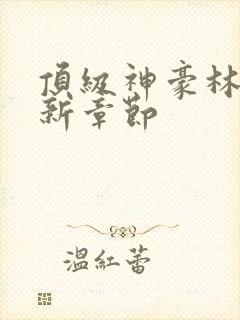 頂級神豪林
新章節
溫紅蕾